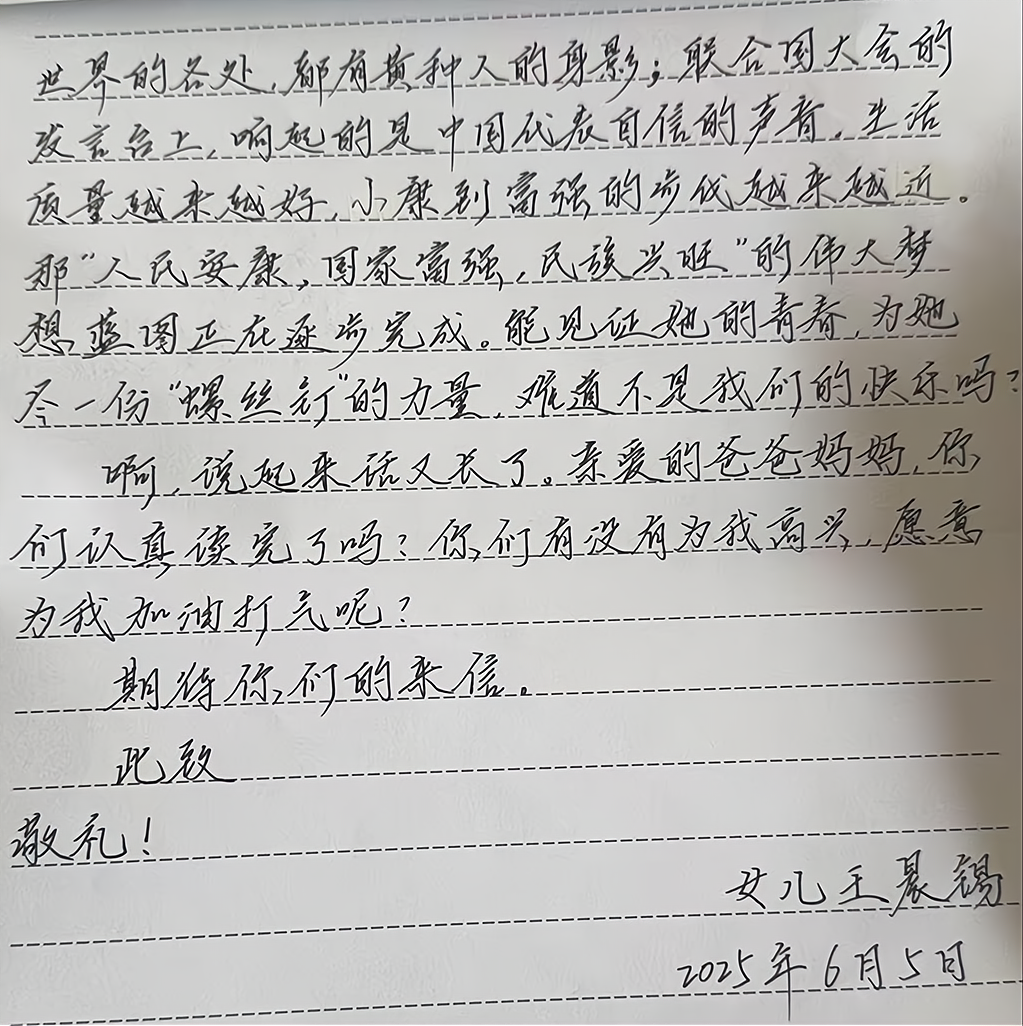 世界的各处,都有黄种人的身影;联合国大会的
发言台上,响起的是中国代表自信的声音,生活
质量越来越好,小康到富强的步伐越来越近。
那"人民安康,国家富强,民族兴旺"的伟大梦
想蓝图正在逐步完成。能见证她的青春,为她
尽一份"螺丝钉"的力量,难道不是我们的快乐吗?
啊,说起来话又长了。亲爱的爸爸妈妈,你
们认真读完了吗?你们有没有为我高兴,愿意
为我加油打气呢?
期待你们的来信。
此致
敬礼!
女儿王晨锡
2025年6月5日